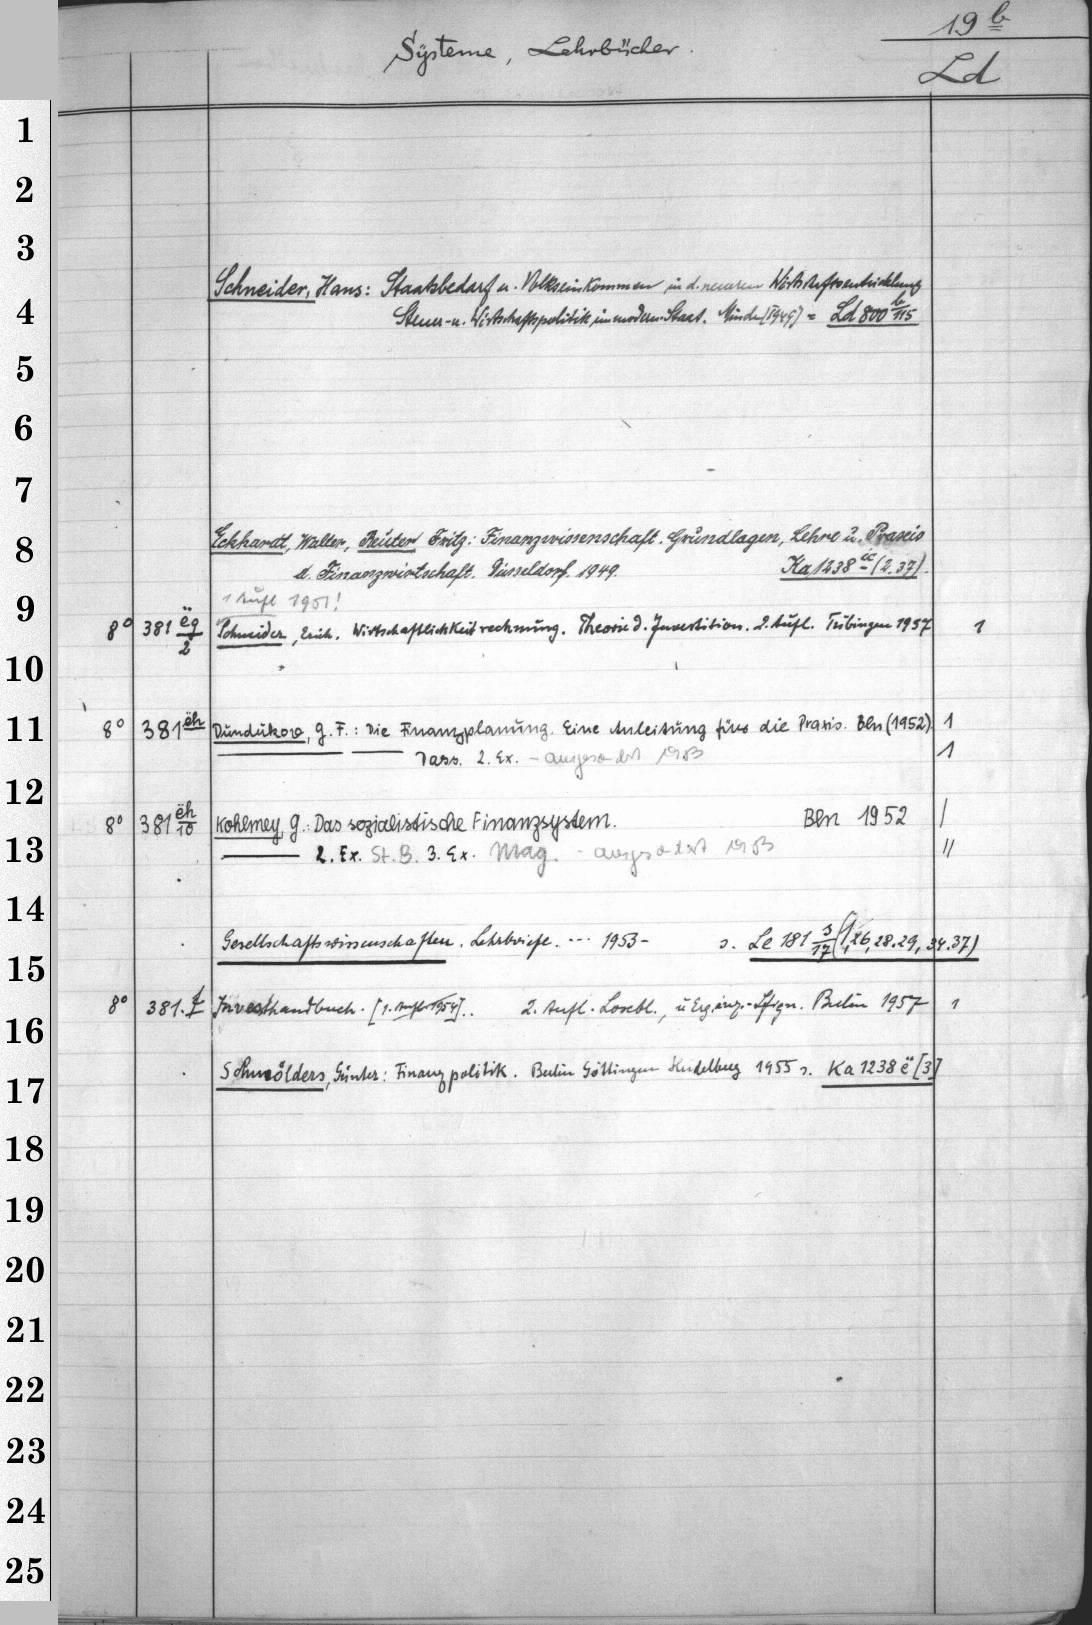 19 b
Systeme, Lehrbücher.
Ld
1
2
3
Schneider, Hans: Staatsbedarf u. Volkseinkommen in d. neueren Wirtschaftsentwicklung
4
Steuer- u. Wirtschaftspolitik im modern. Staat. Minden [1949] = Ld 800 b/115
5
6
7
8
Eckhardt, Walter, Reuter Fritz: Finanzwissenschaft. Grundlagen, Lehre u. Praxis
d. Finanzwirtschaft. Düsseldorf. 1949. Ka 1238 ic (2.37).
9
1 Aufl 1951!
8° 381 ëg/2 Schneider, Erich. Wirtschaftlichkeitrechnung. Theorie d. Investition. 2. Aufl. Tübingen 1957 1
10
11
8° 381 ëh Dundukow, G. F.: Die Finanzplanung. Eine Anleitung für die Praxis. Bln (1952). 1
Dass. 2. Ex. - 1983 1
12
8° 381 ëh/10 Kohlmey, G.: Das sozialistische Finanzsystem. Bln 1952 /
13
2. Ex. St. B. 3. Ex. Mag. - 1983 //
14
Gesellschaftswissenschaften. Lehrbriefe. ... 1953- s. Le 181 s/17 26, 28.29, 34.37)
15
8° 381. f Investhandbuch. [1. Aufl. 1954].. 2. Aufl. Losebl., u Ergänz.-Lfgn. Berlin 1957 1
16
Schmölders, Günter: Finanzpolitik. Berlin Göttingen Heidelberg 1955 s. Ka 1238 ë [3]
17
18
19
20
21
22
23
24
25